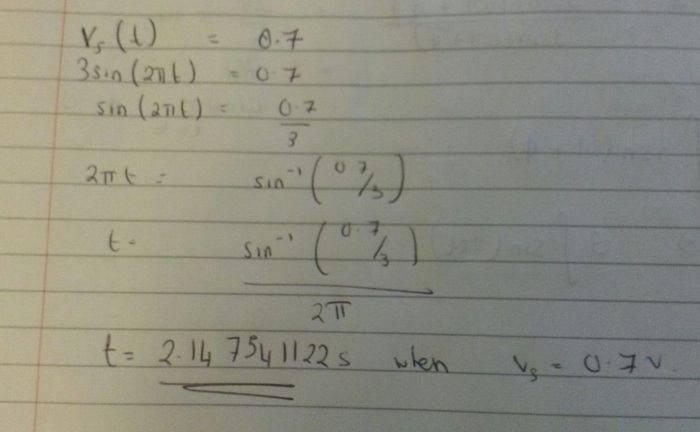 Vs(t) = 0.7
3sin(2πt) = 0.7
sin(2πt) = 0.7/3
2πt = sin⁻¹(0.7/3)
t = sin⁻¹(0.7/3)/2π
t = 2.147541122s when Vs = 0.7v.